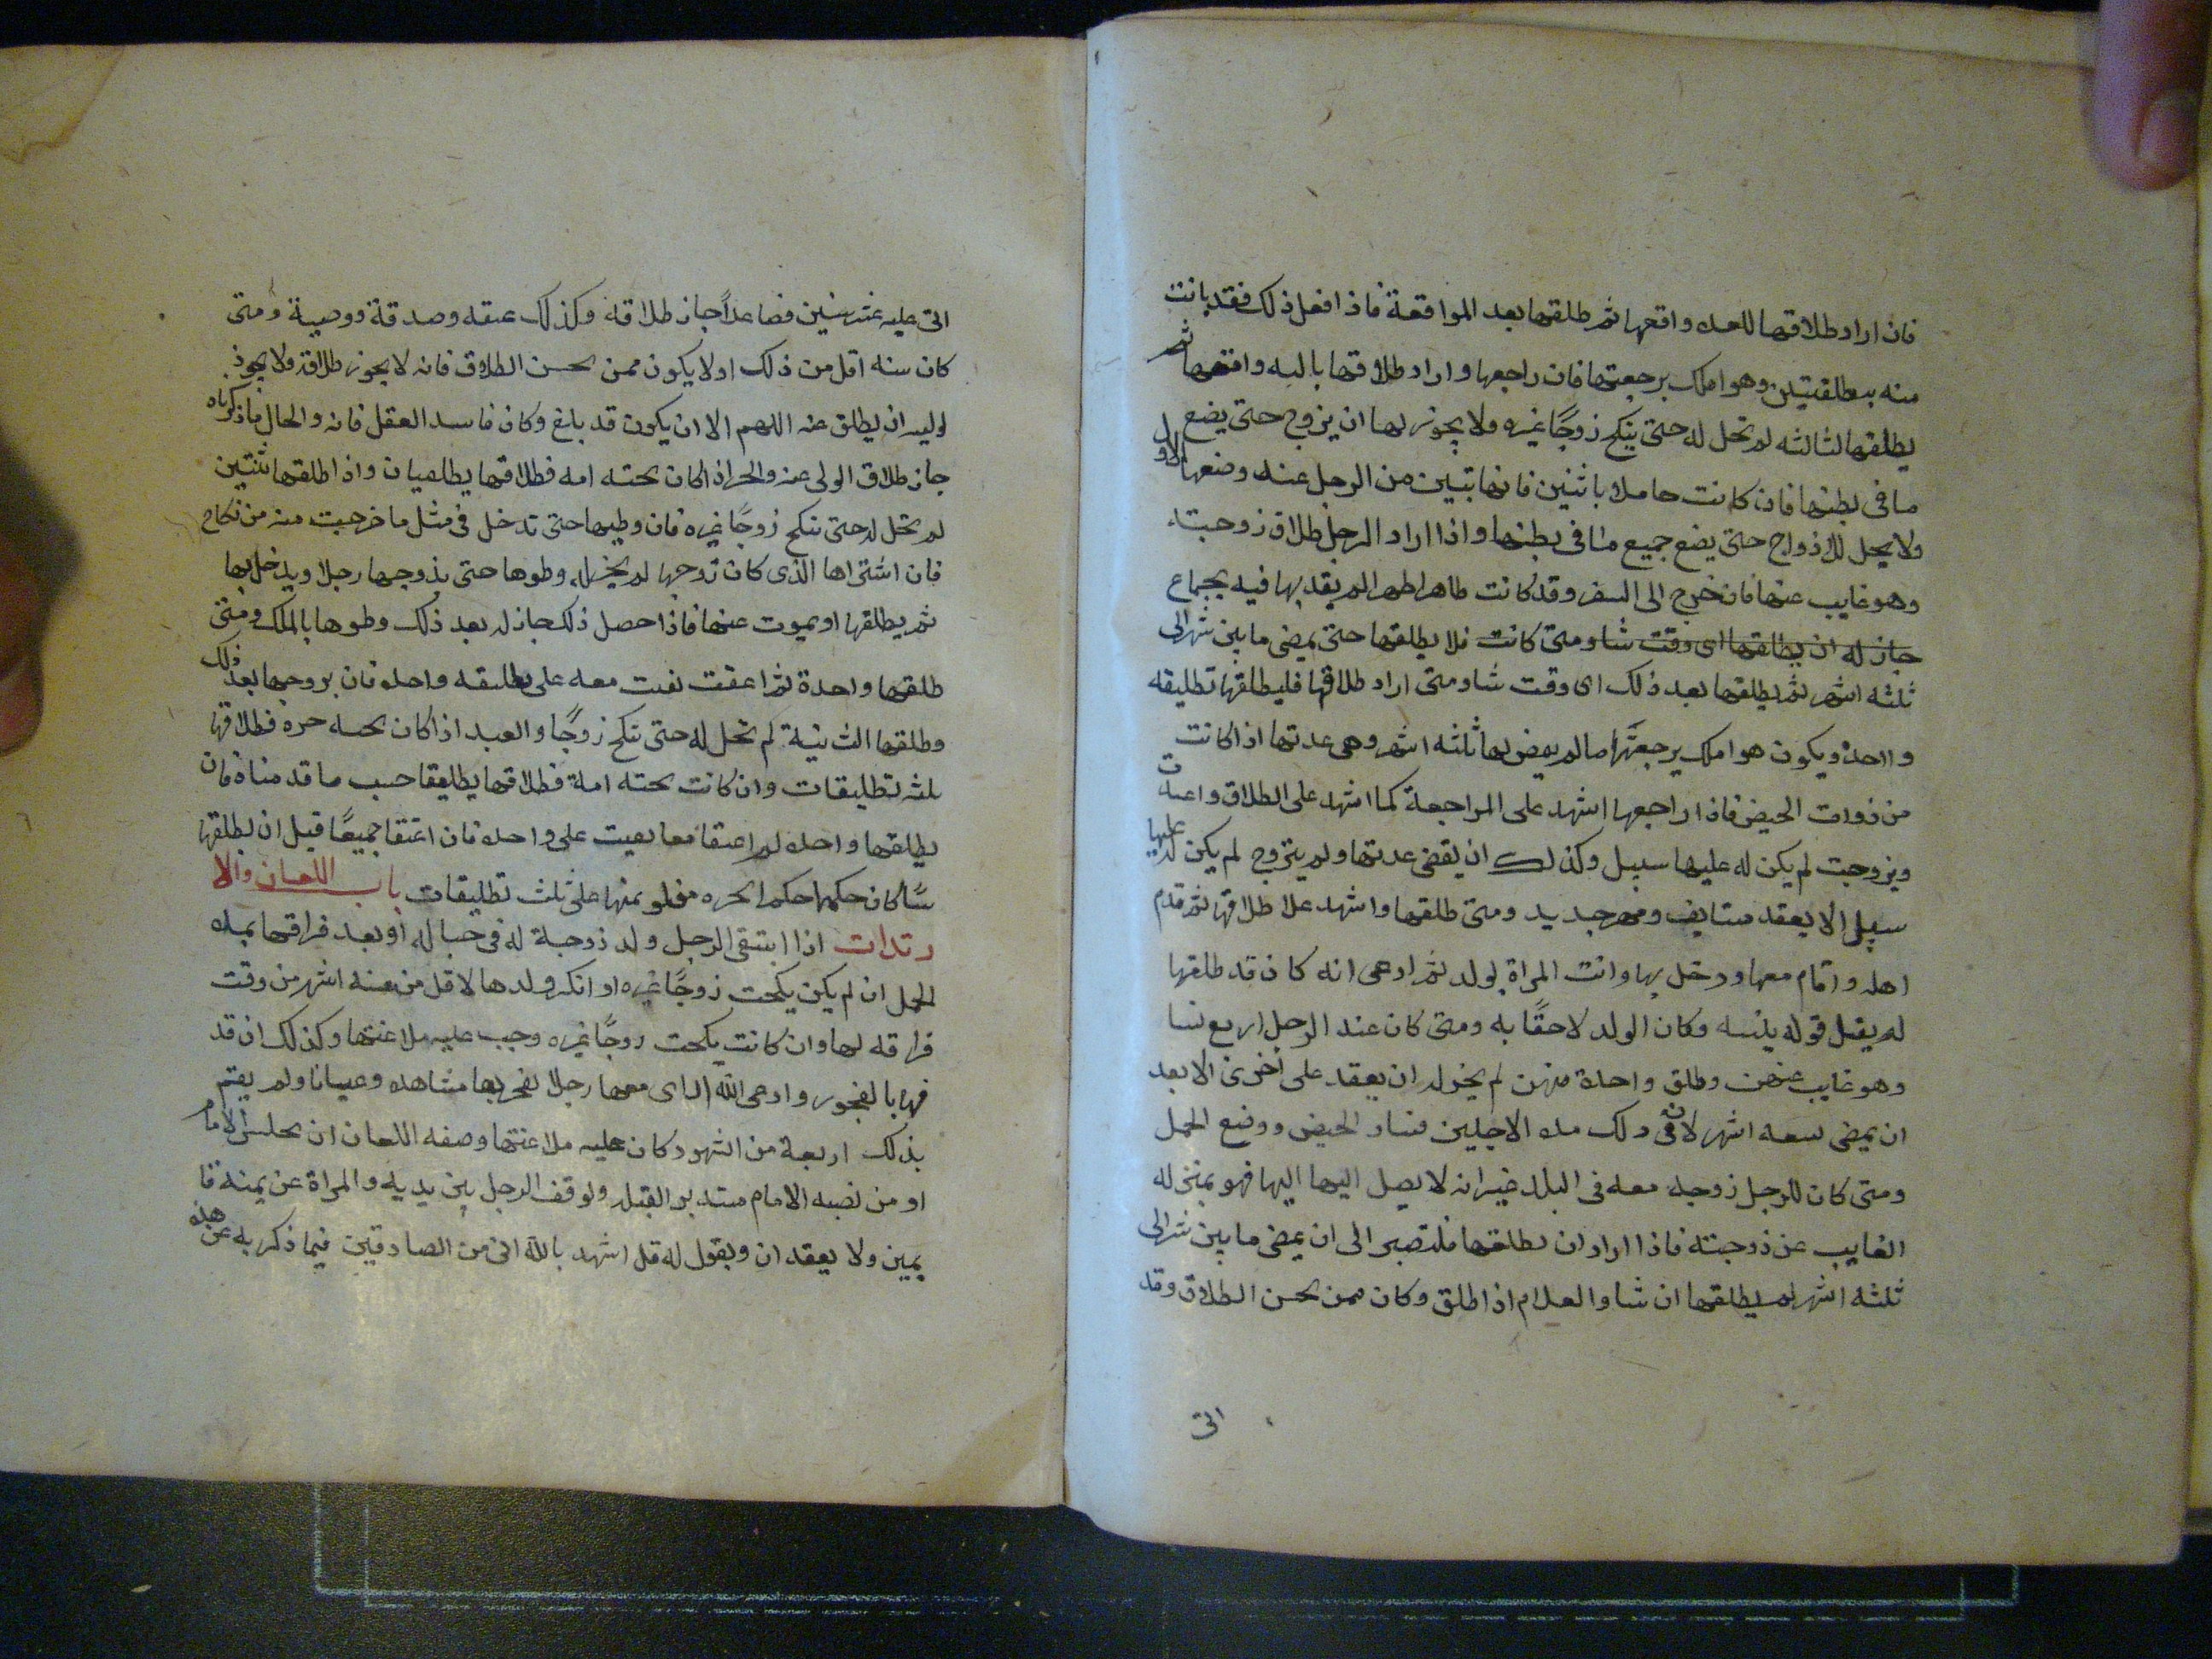 فان اراد طلاقها للعده واقعها ثم طلقها بعد المواقعة فاذا فعل ذلك فقد بانت
منه بتطلقتين وهو املك برجعتها فان راجعها واراد طلاقها بالسه واقعها ثم
يطلقها الثالثه لم تحل له حتى ينكح زوجًا غيره ولا يجوز لها ان يزوج حتى يضع
ما فى بطنها فان كانت حاملا باثنين فانها تبين من الرجل عند وضعها الاول
ولا يحل للازواج حتى يضع جميع ما فى بطنها واذا اراد الرجل طلاق زوجته
وهو غايب عنها فان خرج الى السفر وقد كانت طاهرا طهرا لم يقربها فيه بجماع
جاز له ان يطلقها اى وقت شا ومتى كانت فلا يطلقها حتى يمضى ما بين شهر الى
ثلثه اشهر ثم يطلقها بعد ذلك اى وقت شا ومتى اراد طلاقها فليطلقها تطليقه
واحدة ويكون هو املك برجعتها ما لم يمض لها ثلثه اشهر وهى عدتها اذا كانت
من ذوات الحيض فاذا راجعها اشهد على المراجعة كما اشهد على الطلاق
ويزوجت لم يكن له عليها سبيل وكذلك ان يقضى عدتها ولم يتزوج لم يكن له عليها
سبيل الا بعقد مستايف ومهر جديد ومتى طلقها واشهد علا طلاقها ثم قدم
اهله واقام معها ودخل بها واتت المراة بولد ثم ادعى انه كان قد طلقها
لم يقبل قوله بلنسه وكان الولد لاحقًا به ومتى كان عند الرجل اربع نسا
وهو غايب عنهن وطلق واحدة منهن لم يجز له ان يعقد على اخرى الا بعد
ان يمضى تسعه اشهر لان فى ذلك مده الاجلين فساد الحيض ووضع الحمل
ومتى كان للرجل زوجه معه فى البلد غير انه لا يصل اليها اليها فهو بمنزله
الغايب عن زوجته فاذا اراد ان يطلقها فليصبر الى ان يمضى ما بين شهر الى
ثلثه اشهر ثم يطلقها ان شا والغلام اذا طلق وكان ممن يحسن الطلاق وقد
اتى
اتى عليه عشر سنين فصاعدًا جاز طلاقه وكذلك عتقه وصدقة ووصية ومتى
كان سنه اقل من ذلك او لا يكون ممن يحسن الطلاق فانه لا يجوز طلاقه ولا يجوز
لوليه ان يطلق عنه اللهم الا ان يكون قد بلغ وكان فاسد العقل فانه والحال ما ذكرناه
جاز طلاق الولى عنه والحر اذا كان تحته امه فطلاقها يطلقيان واذا طلقها ثنتين
لم تحل له حتى تنكح زوجًا غيره فان وطيها حتى تدخل فى مثل ما خرجت منه من نكاح
فان اشتراها الذى كان زوجها لم يجز له وطوها حتى يزوجها رجلا ويدخل بها
ثم يطلقها او يموت عنها فاذا حصل ذلك جاز له بعد ذلك وطوها بالملك ومتى
طلقها واحدة ثم اعتقت بقيت معه على تطليقه واحده فان يزوجها بعد ذلك
وطلقها الثانية لم تحل له حتى تنكح زوجًا والعبد اذا كان تحته حره فطلاقها
ثلثه تطليقات وان كانت تحته امة فطلاقها يطليقا حسب ما قدمناه فان
يطلقها واحده ثم اعتقا معا بقيت على واحده فان اعتقا جميعًا قبل ان يطلقها
سًا كان حكمها حكم الحره على ثلث تطليقات باب اللعان والا
رتدات اذا انتفى الرجل ولد زوجة له فى حباله او بعد فراقها بمده
الحمل ان لم يكن نكحت زوجًا غيره او انكر ولدها لاقل من سته اشهر من وقت
فراقه لها وان كانت نكحت زوجًا غيره وجب عليه ملاعنتها وكذلك ان قد
فها بالفجور وادعى انه راى معها رجلا يفجر بها مشاهده وعيانا ولم يقم
بذلك اربعة من الشهود كان عليه ملاعنتها وصفه اللعان ان يجلس الامام
او من نصبه الامام مستدبر القبله ويوقف الرجل بين يديه والمراة عن يمينه قا
يمين ولا يعقد ان ويقول له قل اشهد بالله انى من الصادقين فيما ذكر به عن هذه